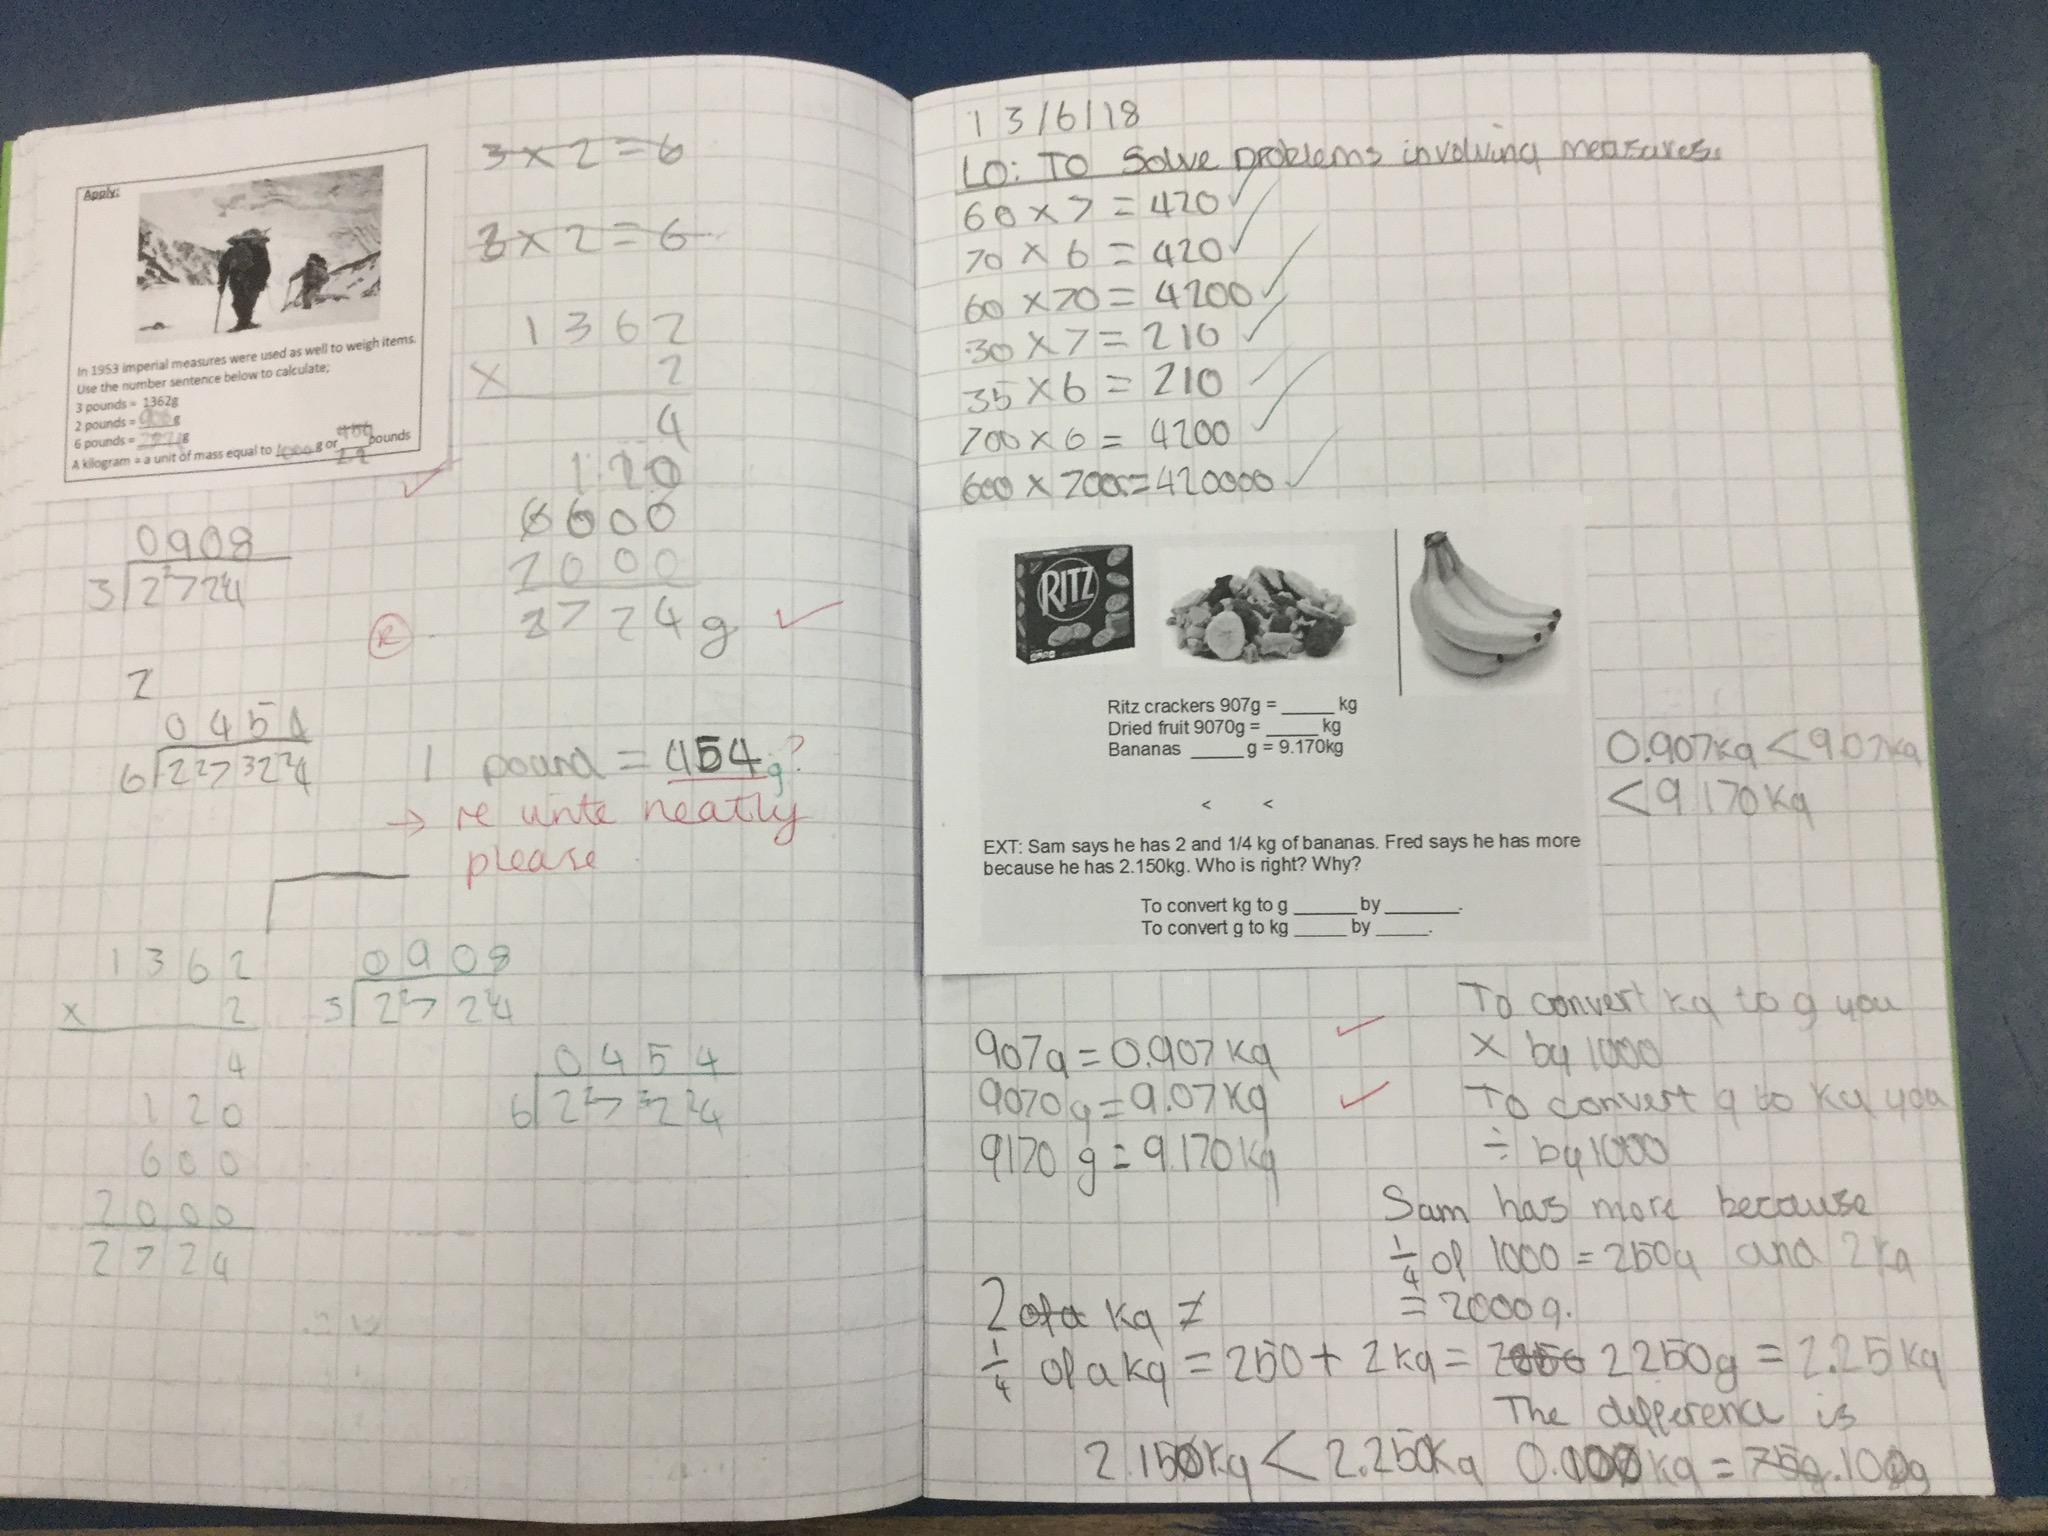 Apply:
In 1953 imperial measures were used as well to weigh items.
Use the number sentence below to calculate;
3 pounds = 1362g
2 pounds = 908g
6 pounds = 2724g
A kilogram = a unit of mass equal to 1000g or 2.2 pounds
3 x 2 = 6
3 x 2 = 6
1362
x 2
4
120
600
2000
2724g
R
0908
3 2 27 2 24
2
0454
6 2 27 32 24
1 pound = 454g?
→ re write neatly
please
1362
x 2
4
120
600
2000
2724
0908
3 2 27 2 24
0454
6 2 27 32 24
13/6/18
LO: To Solve problems involving measures.
60 x 7 = 420
70 x 6 = 420
60 x 70 = 4200
30 x 7 = 210
35 x 6 = 210
700 x 6 = 4200
600 x 700 = 420000
RITZ
Ritz crackers 907g = _____ kg
Dried fruit 9070g = _____ kg
Bananas _____ g = 9.170kg
< <
EXT: Sam says he has 2 and 1/4 kg of bananas. Fred says he has more
because he has 2.150kg. Who is right? Why?
To convert kg to g ______ by _______.
To convert g to kg _____ by _____.
0.907kg < 907kg
< 9.170kg
907g = 0.907kg
9070g = 9.07kg
9170g = 9.170kg
To convert kg to g you
x by 1000
To convert g to kg you
÷ by 1000
Sam has more because
1/4 of 1000 = 250g and 2kg
= 2000g.
2 of a kg ≠
1/4 of a kg = 250 + 2kg = 2250g = 2.25kg
The difference is
2.150kg < 2.250kg 0.100kg = 75g .100g